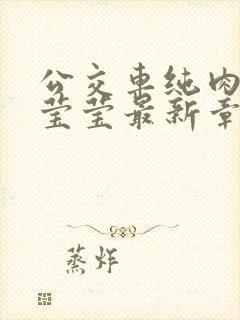 公交车纯肉
莹莹最新章
蒸炸